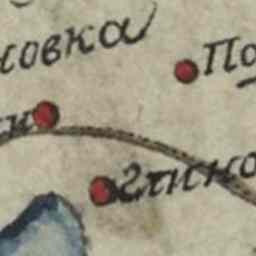 ховка
По
ки
Глино